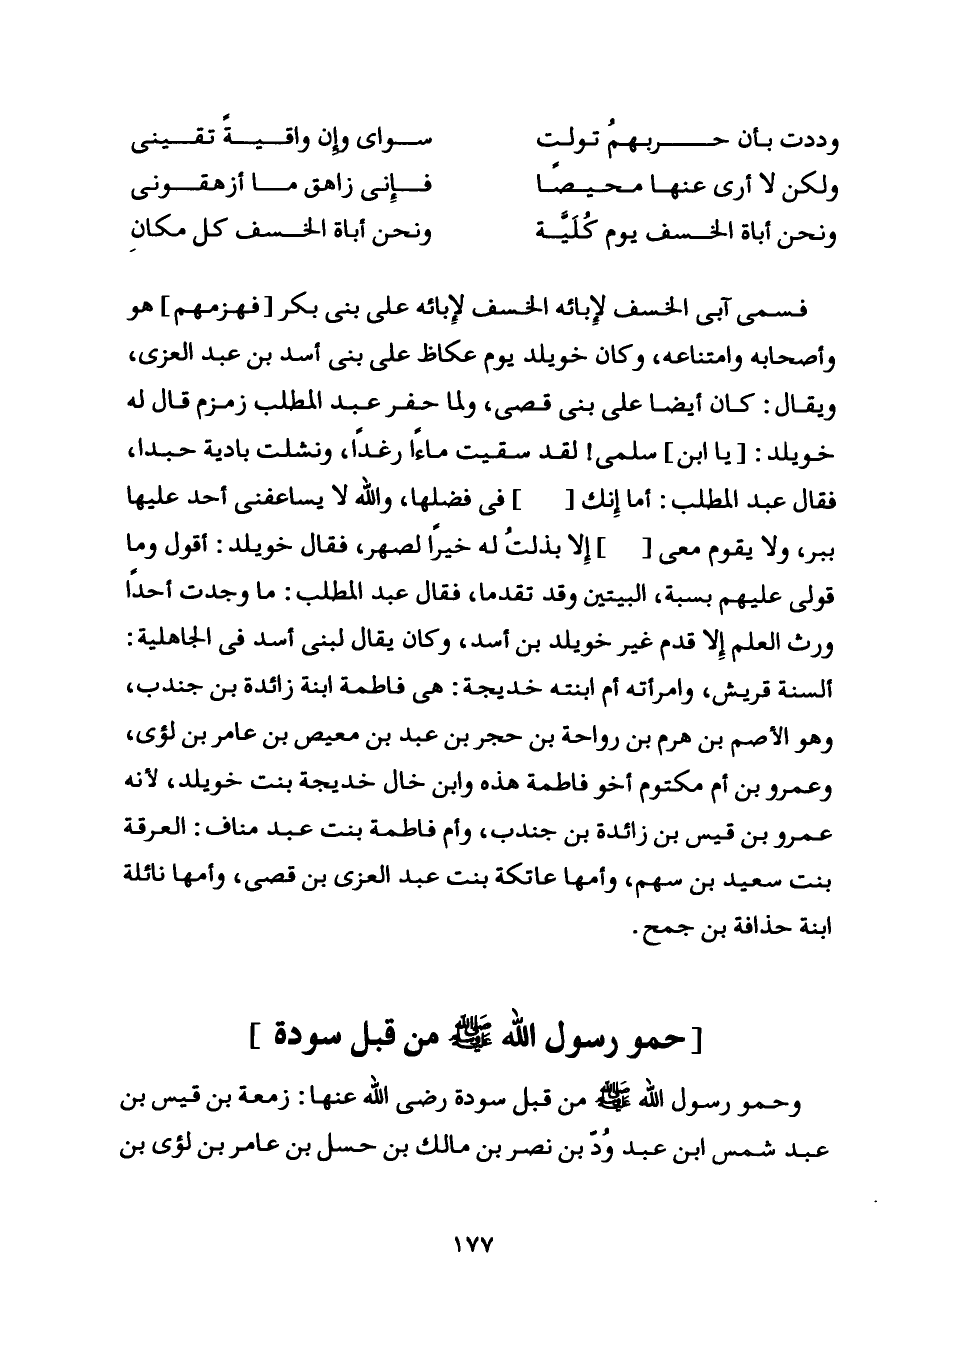 وددت بأن حربهمُ تولت سواى وإن واقيةً تقينى
ولكن لا أرى عنها محيصًا فإنى زاهق ما أزهقونى
ونحن أباة الخسف يوم كُلَيَّة ونحن أباة الخسف كل مكان
فسمى آبى الخسف لإبائه الخسف لإبائه على بنى بكر [فهزمهم] هو
وأصحابه وامتناعه، وكان خويلد يوم عكاظ على بنى أسد بن عبد العزى،
ويقال: كان أيضا على بنى قصى، ولما حفر عبد المطلب زمزم قال له
خويلد: [يا ابن] سلمى! لقد سقيت ماءاً رغداً، ونشلت بادية حبدا،
فقال عبد المطلب: أما إنك [ ] فى فضلها، والله لا يساعفنى أحد عليها
ببر، ولا يقوم معى [ ] إلا بذلتُ له خيرًا لصهر، فقال خويلد: أقول وما
قولى عليهم بسبة، البيتين وقد تقدما، فقال عبد المطلب: ما وجدت أحدًا
ورث العلم إلا قدم غير خويلد بن أسد، وكان يقال لبنى أسد فى الجاهلية:
ألسنة قريش، وامرأته أم ابنته خديجة: هى فاطمة ابنة زائدة بن جندب،
وهو الأصم بن هرم بن رواحة بن حجر بن عبد بن معيص بن عامر بن لؤى،
وعمرو بن أم مكتوم أخو فاطمة هذه وابن خال خديجة بنت خويلد، لأنه
عمرو بن قيس بن زائدة بن جندب، وأم فاطمة بنت عبد مناف: العرقة
بنت سعيد بن سهم، وأمها عاتكة بنت عبد العزى بن قصى، وأمها نائلة
ابنة حذافة بن جمح.
[حمو رسول الله ﷺ من قبل سودة ]
وحمو رسول الله ﷺ من قبل سودة رضى الله عنها: زمعة بن قيس بن
عبد شمس ابن عبد وُدّ بن نصر بن مالك بن حسل بن عامر بن لؤى بن
١٧٧